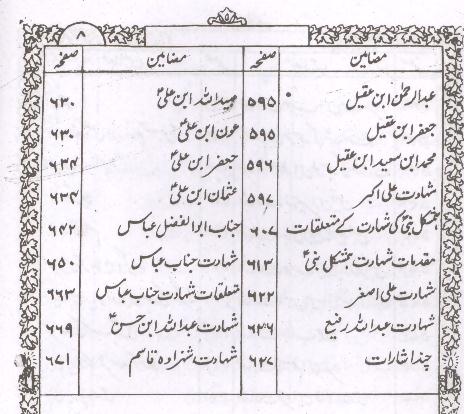 ۸
مضامین صفحہ مضامین صفحہ
عبدالرحمٰن ابن عقیل ۵۹۵ عبیداللہ ابن علیؑ ۶۳۰
جعفر ابن عقیل ۵۹۵ عون ابن علیؑ ۶۳۰
محمد ابن سعید ابن عقیل ۵۹۶ جعفر ابن علیؑ ۶۳۴
شہادت علی اکبر ۵۹۷ عثمان ابن علیؑ ۶۳۴
ہمشکل نبیؐ کی شہادت کے متعلقات ۶۰۷ جناب ابوالفضل عباس ۶۴۳
مقدمات شہادت ہمشکل نبیؐ ۶۱۳ شہادت جناب عباس ۶۵۰
شہادت علی اصغر ۶۲۲ متعلقات شہادت جناب عباس ۶۶۳
شہادت عبداللہ رضیع ۶۲۶ شہادت عبداللہ ابن حسنؑ ۶۶۹
چند اشارات ۶۲۷ شہادت شہزادہ قاسم ۶۷۱